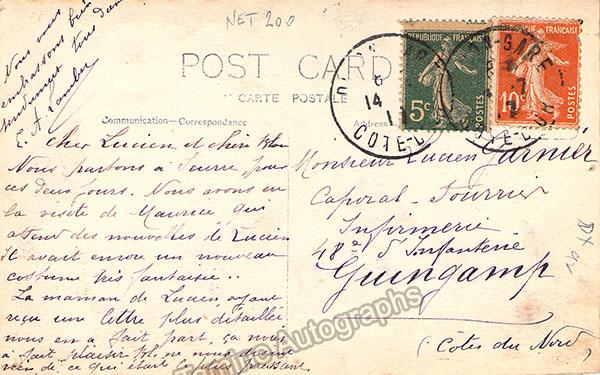 NET 200
Nous vous
embrassons bien
tendrement tous deux
POST CARD
CARTE POSTALE
Communication—Correspondance
Cher Lucien et chère
Nous partons à Seurre pour
ces deux jours. Nous avons eu
la visite de Maurice, qui
attend des nouvelles de Lucien
Il avait encore un nouveau
costume gris fantaisie..
La maman de Lucien, ayant
reçu une lettre plus détaillée
nous en a fait part, ça nous
a fait plaisir
de ce qui était plus
RÉPUBLIQUE FRANÇAISE
5c
POSTES
FRANÇAISE
10c
POSTES
GARE
14
COTE-D'OR
Monsieur Lucien Garnier
Caporal-Fourrier
Infirmerie
48e d'Infanterie
Guingamp
(Côtes du Nord)
Tamino Autographs